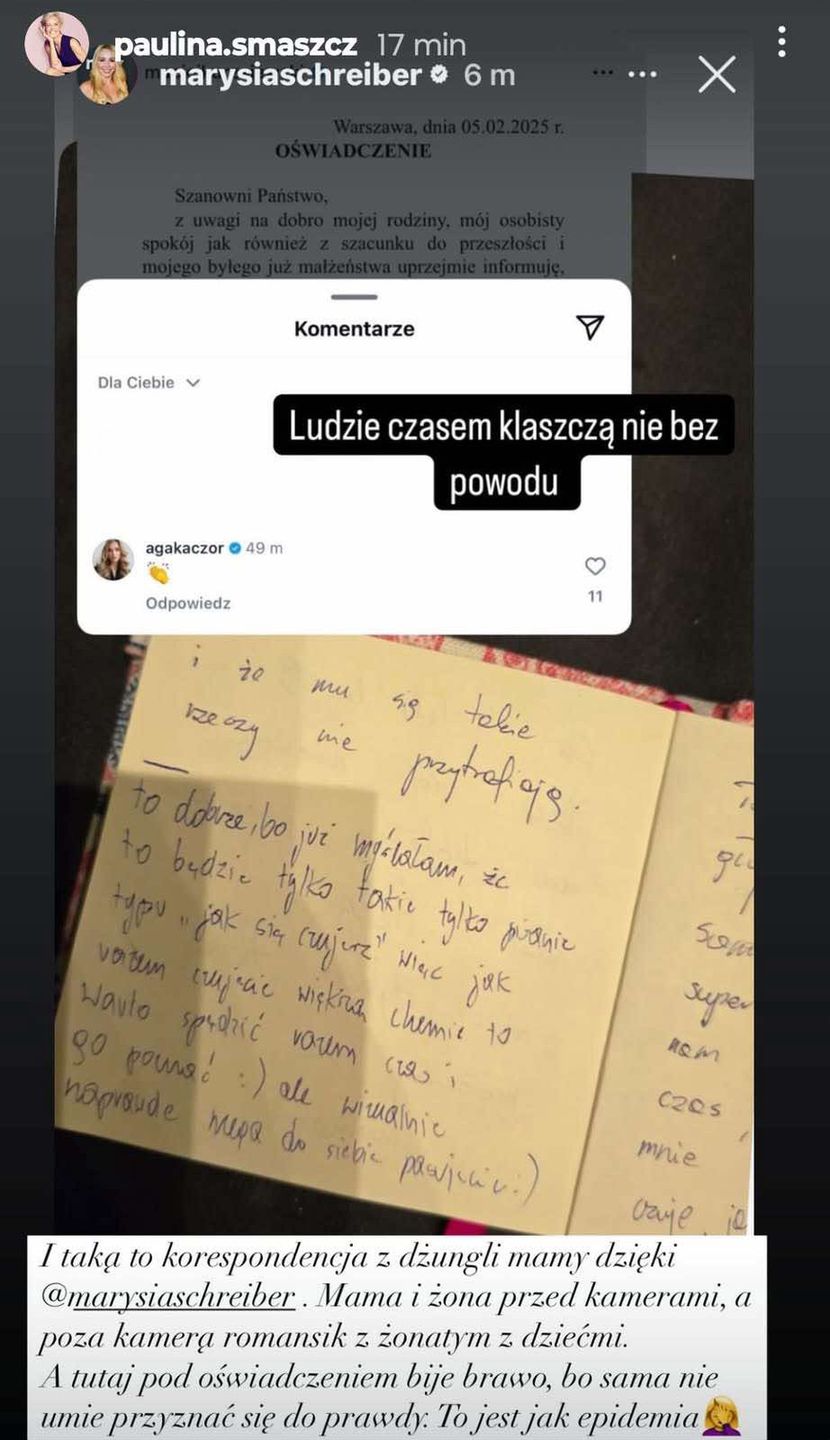 paulina.smaszcz 17 min
marysiaschreiber 6 m
Warszawa, dnia 05.02.2025 r.
OŚWIADCZENIE
Szanowni Państwo,
z uwagi na dobro mojej rodziny, mój osobisty
spokój jak również z szacunku do przeszłości i
mojego byłego już małżeństwa uprzejmie informuję,
Komentarze
Dla Ciebie
Ludzie czasem klaszczą nie bez
powodu
agakaczor 49 m
👏
Odpowiedz
11
i że mu się takie
rzeczy nie przytrafiają.
to dobrze, bo już myślałam, że
to będzie tylko takie tylko pisanie
typu „jak się czujesz" więc jak
razem czujecie większą chemie to
warto spędzić razem czas i
go poznać :) ale wizualnie
naprawde mega do siebie pasujecie :)
super
nam
czas
mnie
czuje
I taką to korespondencja z dżungli mamy dzięki
@marysiaschreiber . Mama i żona przed kamerami, a
poza kamerą romansik z żonatym z dziećmi.
A tutaj pod oświadczeniem bije brawo, bo sama nie
umie przyznać się do prawdy. To jest jak epidemia🤦‍♀️